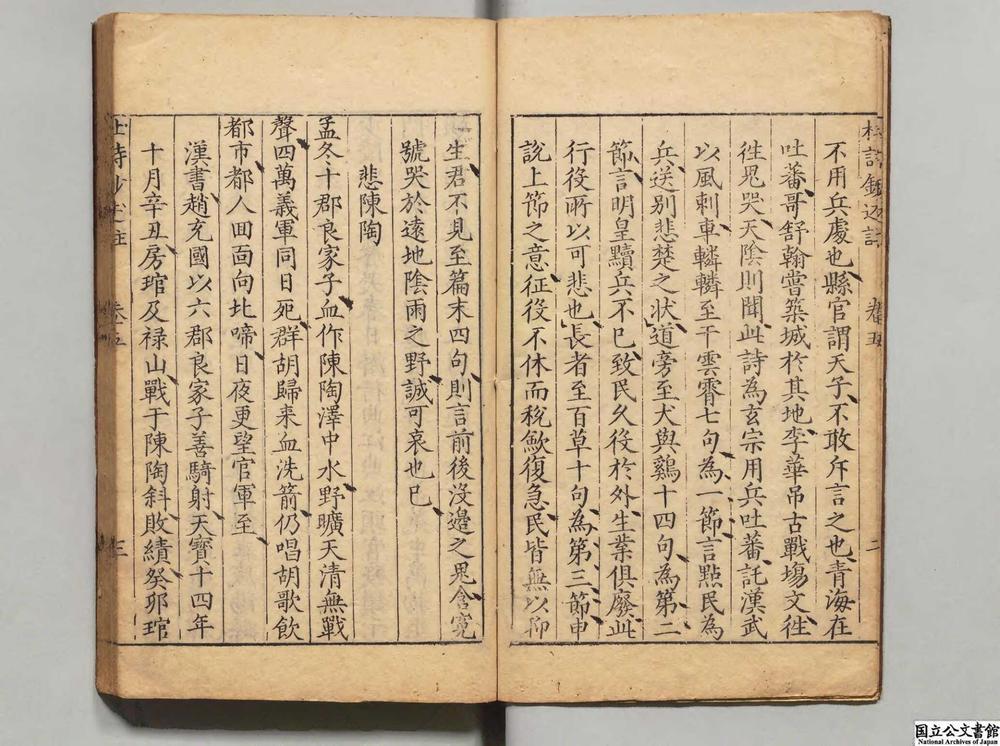 杜詩鈔述註 卷五 二
不用兵處也縣官謂天子不敢斥言之也青海在
吐蕃哥舒翰嘗築城於其地李華吊古戰場文徃
徃鬼哭天陰則聞此詩為玄宗用兵吐蕃託漢武
以風刺車轔轔至干雲霄七句為一節言點民為
兵送別悲楚之狀道旁至犬與鷄十四句為第二
節言明皇黷兵不已致民久役於外生業俱廢此
行役所以可悲也長者至百草十句為第三節申
說上節之意征役不休而稅歛復急民皆無以仰
生君不見至篇末四句則言前後沒邉之鬼含寃
號哭於遠地陰雨之野誠可哀也已
悲陳陶
孟冬十郡良家子血作陳陶澤中水野曠天清無戰
聲四萬義軍同日死群胡歸来血洗箭仍唱胡歌飲
都市都人囬面向北啼日夜更望官軍至
漢書趙充國以六郡良家子善騎射天寶十四年
十月辛丑房琯及禄山戰于陳陶斜敗績癸卯琯
杜詩鈔述註 卷五 三
国立公文書館
National Archives of Japan